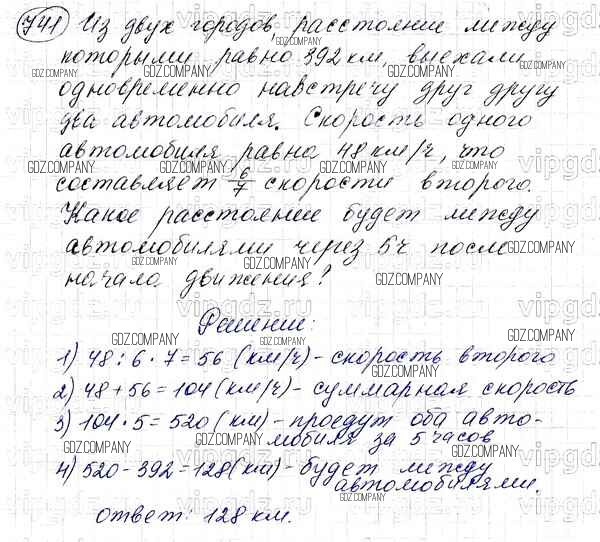 741 Из двух городов, расстояние между
которыми равно 392 км, выехали
одновременно навстречу друг другу
два автомобиля. Скорость одного
автомобиля равна 48 км/ч, что
составляет 6/7 скорости второго.
Какое расстояние будет между
автомобилями через 5ч после
начала движения?
Решение:
1) 48:6·7=56 (км/ч)-скорость второго
2) 48+56=104(км/ч)-суммарная скорость
3) 104·5=520(км)-проедут оба авто-
мобиля за 5 часов
4) 520-392=128(км)-будет между
автомобилями.
Ответ: 128 км.